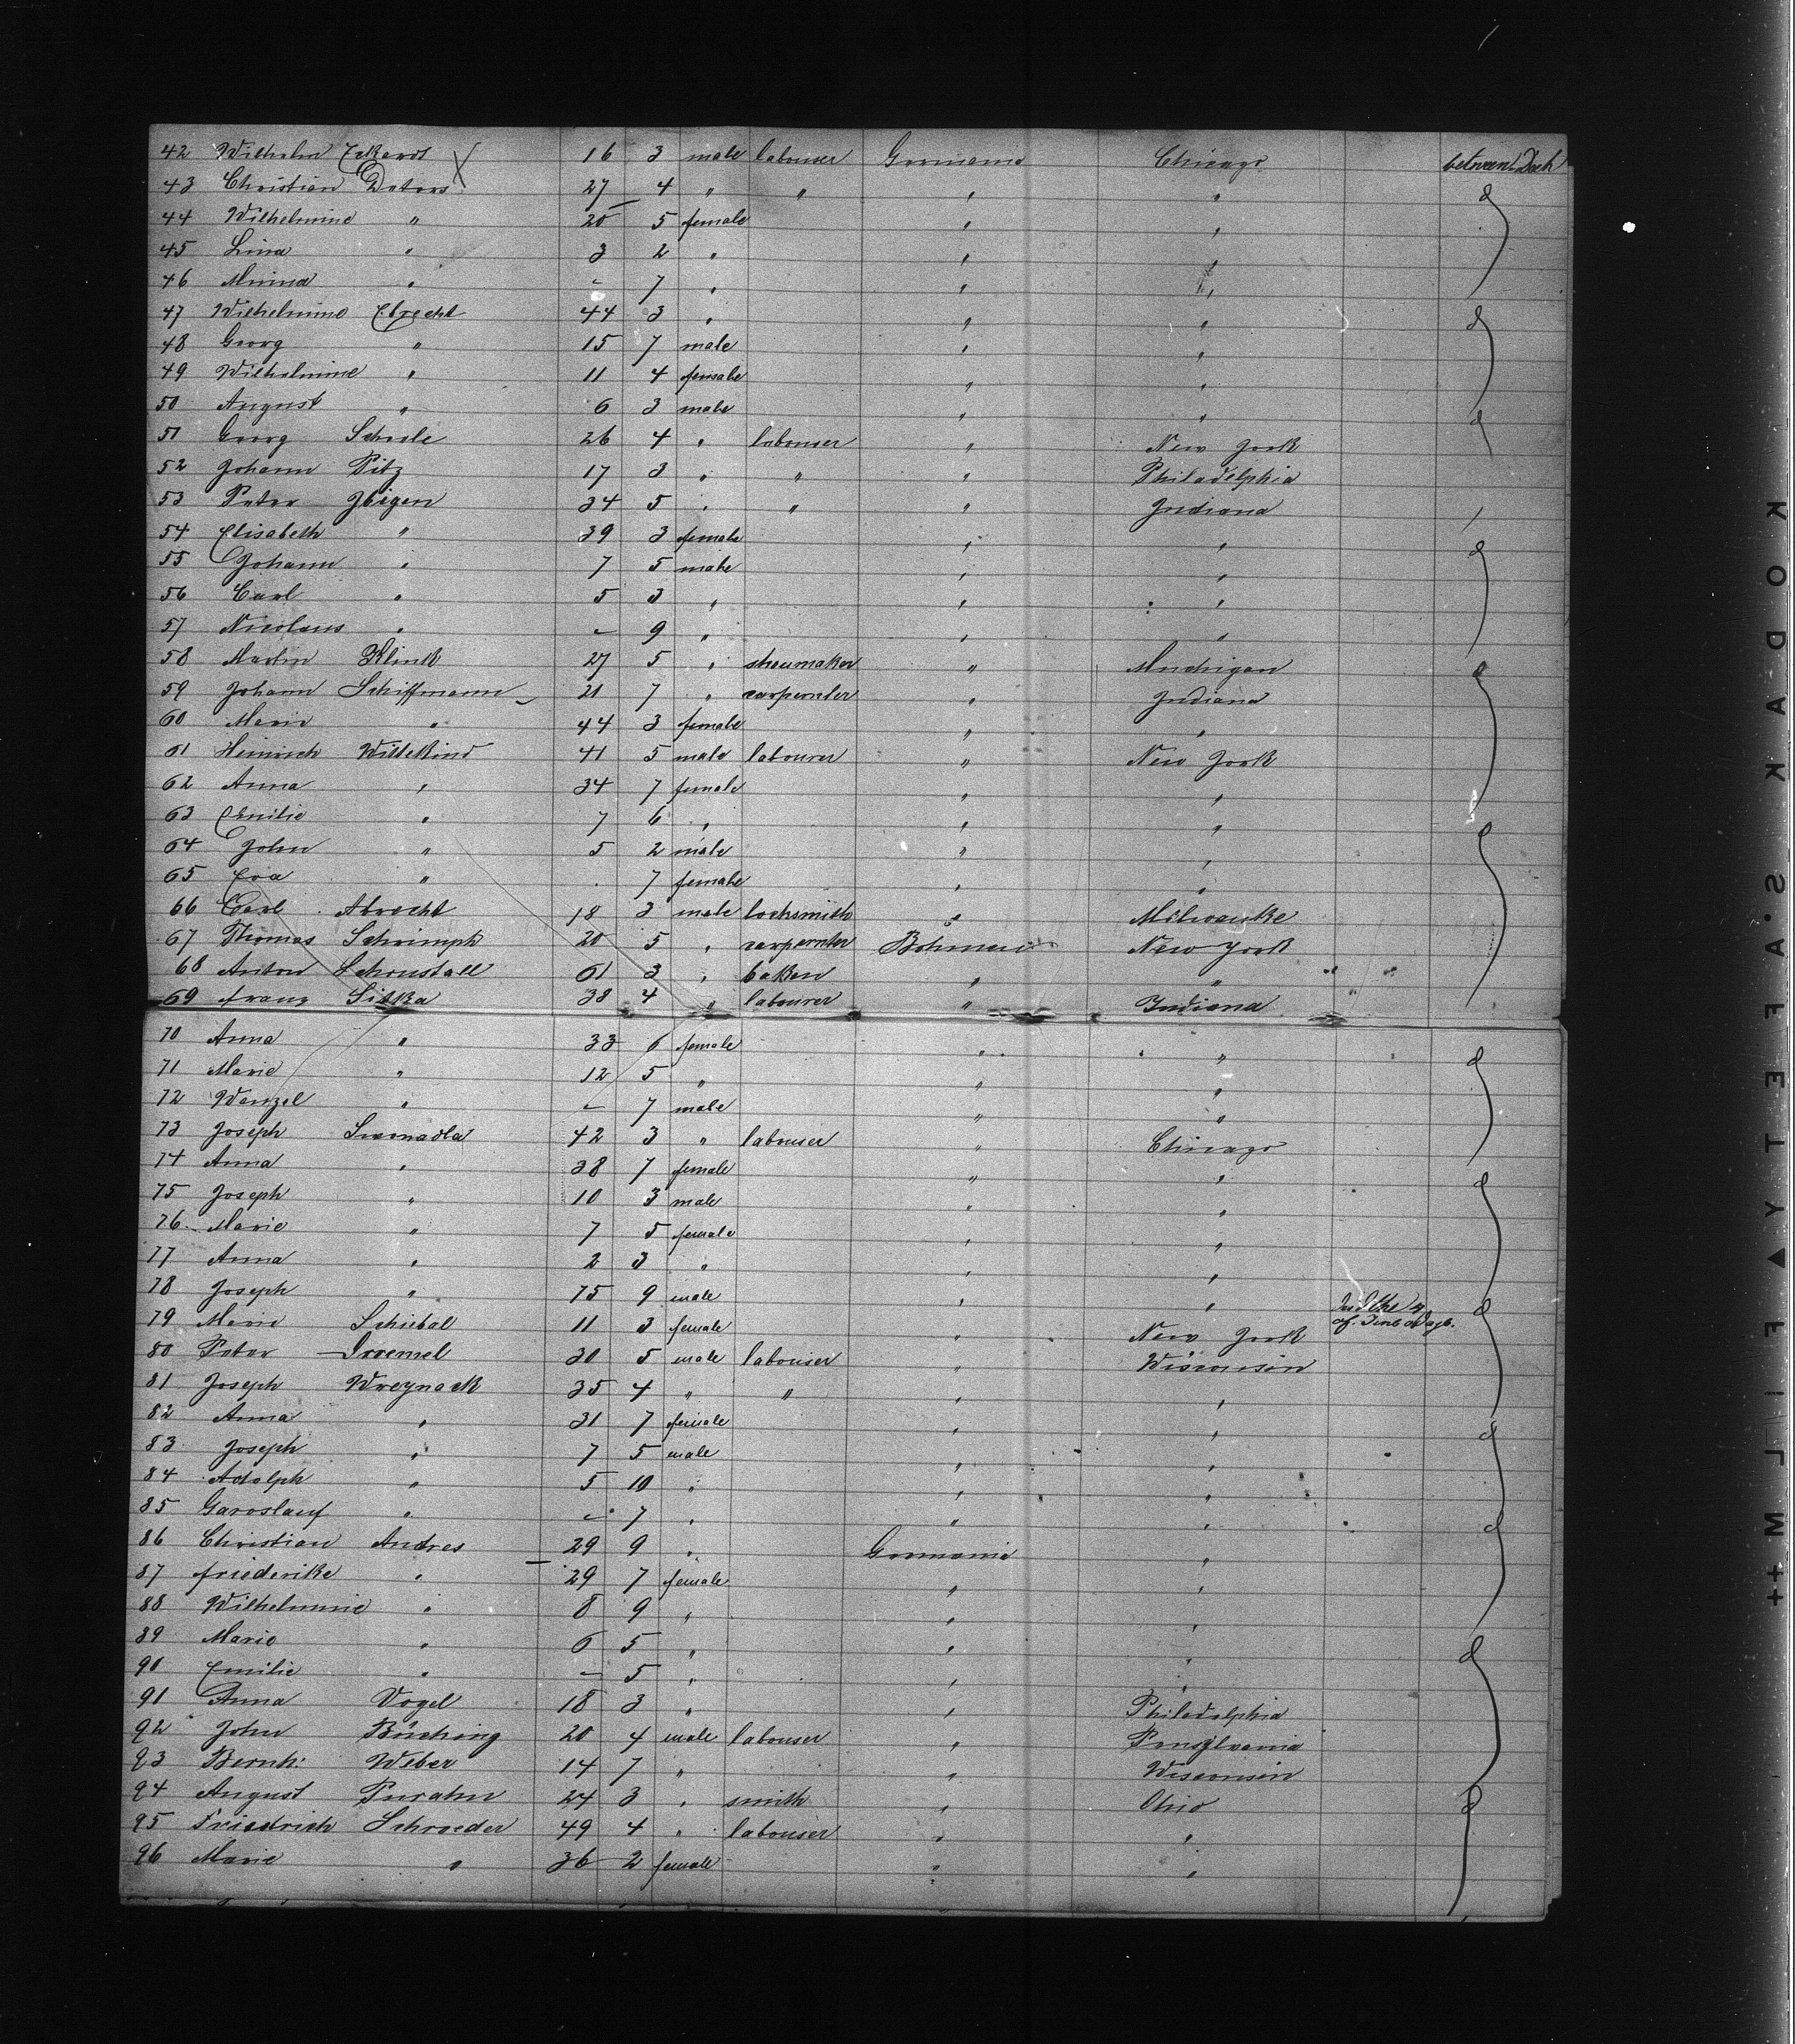 42 Wilhelm Eckardt 16 3 male labourer Germania Chicago between Deck
43 Christian Deters 27 4 " " " "
44 Wilhelmine " 20 5 female " "
45 Lina " 3 2 " " "
46 Minna " - 7 " " "
47 Wilhelmine Ebrecht 44 3 " " "
48 Georg " 15 7 male " "
49 Wilhelmine " 11 4 female " "
50 August " 6 3 male " "
51 Georg Scheele 26 4 " labourer " New York
52 Johann Pitz 17 3 " " " Philadelphia
53 Peter 34 5 " " " Indiana
54 Elisabeth " 39 3 female " "
55 Johann " 7 5 male " "
56 Carl " 5 3 " " "
57 Nicolaus " - 9 " " "
58 Martin Klink 27 5 " shoumaker " Michigan
59 Johann Schiffmann 21 7 " carpernter " Indiana
60 Marie " 44 3 female " "
61 Heinrich Wittekind 41 5 male labourer " New York
62 Anna " 34 7 female " "
63 Emilie " 7 6 " " "
64 John " 5 2 male " "
65 Eva " - 7 female " "
66 Carl Abrecht 18 3 male locksmith " Milwaukee
67 Thomas Schrimph 20 5 " carpernter Bohmen New York
68 Anton Schoustall 61 3 " baker " "
69 Franz Siska 38 4 " labourer " Indiana
70 Anna " 33 6 female " "
71 Marie " 12 5 " " "
72 Wenzel " - 7 male " "
73 Joseph 42 3 " labourer " Chicago
74 Anna " 38 7 female " "
75 Joseph " 10 3 male " "
76 Marie " 7 5 female " "
77 Anna " 2 3 " " "
78 Joseph " 75 9 male " "
79 Marie Schiebal 11 3 female " New York
80 Peter 30 5 male labourer " Wisconsin
81 Joseph Wreynack 35 4 " " " "
82 Anna " 31 7 female " "
83 Joseph " 7 5 male " "
84 Adolph " 5 10 " " "
85 Garoslauf " - 7 " " "
86 Christian Andres 29 9 " Germania "
87 Friederike " 29 7 female " "
88 Wilhelmine " 8 9 " " "
89 Marie " 6 5 " " "
90 Emilie " - 5 " " "
91 Anna Vogel 18 3 " " Philadelphia
92 John Büsching 20 4 male labourer " Pensylvania
93 Bernh: Weber 14 7 " " Wisconsin
94 August Purahn 24 3 " smith " Ohio
95 Friedrich Schroeder 49 4 " labourer " "
96 Marie " 36 2 female " "